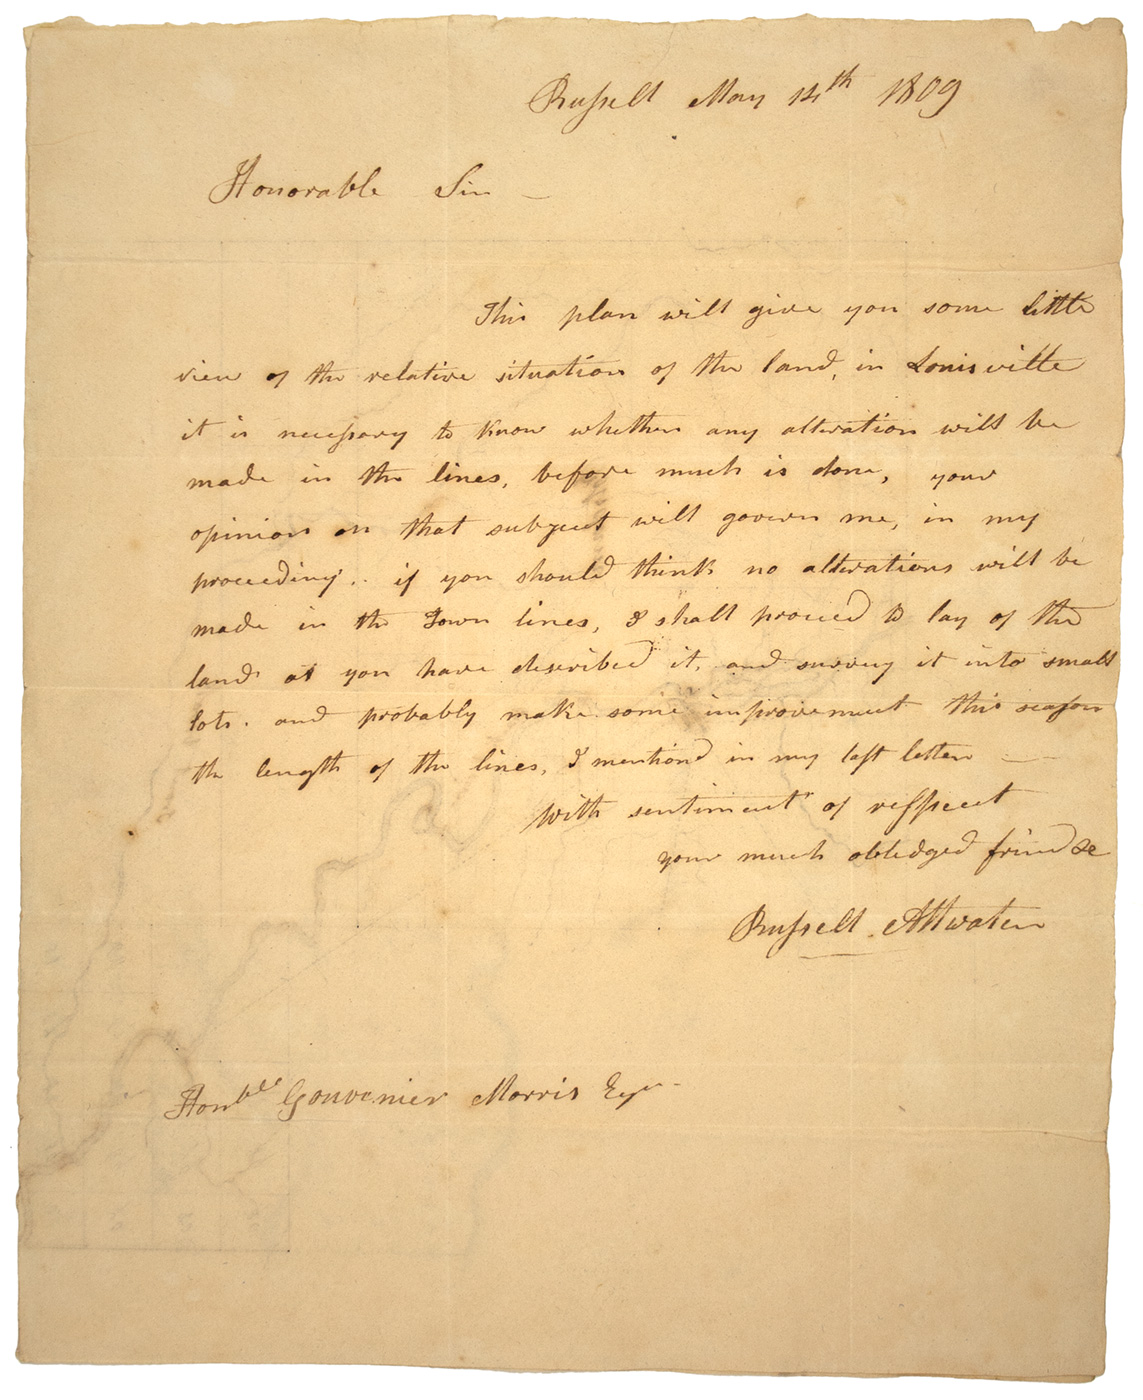 Russell May 14th 1809
Honorable Sir —
This plan will give you some little
view of the relative situation of the land, in Louisville
it is necessary to know whether any alteration will be
made in the lines, before much is done, your
opinion on that subject will govern me, in my
proceeding.. if you should think no alterations will be
made in the Town lines, I shall proceed to lay of the
land as you have described it, and survey it into small
lots. and probably make some improvement this season
the length of the lines, I mentiond in my last letter —
With sentiments of respect
your much obledged friend &c
Russell Attwater
Honble Gouvenier Morris Esqr